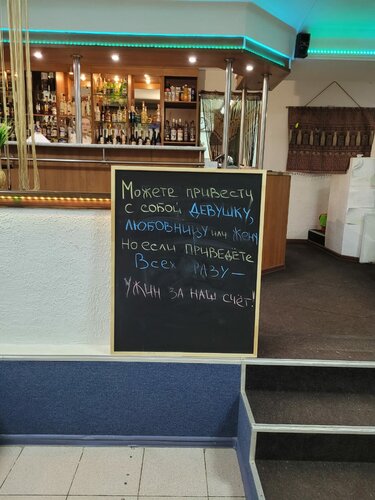 Можете привести
с собой девушку,
любовницу или жену
но если приведёте
Всех разу —
ужин за наш счёт!